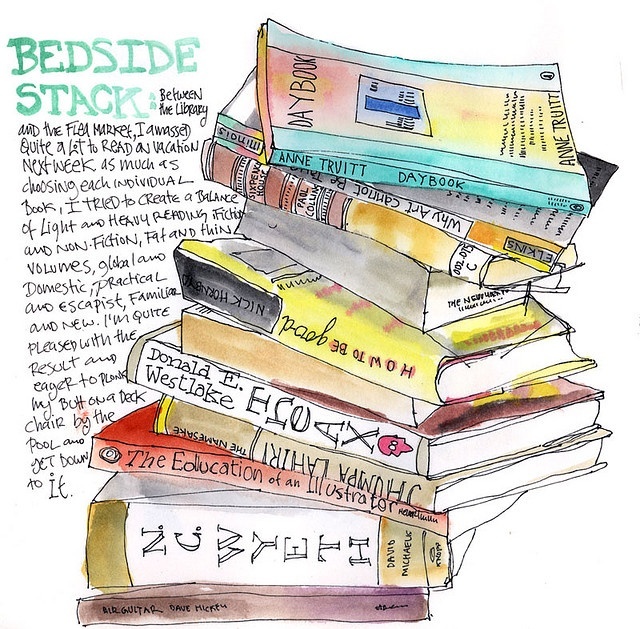 BEDSIDE
STACK:
BETWEEN
the LIBRARY
and the FLEA MARKET, I AMASSED
QUITE A LOT to READ ON VACATION
NEXT WEEK. as much as
choosing each INDIVIDUAL
Book, I TRIED to CREATE a BALANCE
of Light and HEAVY READING, FICTION
and NON-FICTION, FAT and thin
VOLUMES, global and
Domestic, PRACTICAL
and ESCAPIST, FAMILIAR
and NEW. I'M QUITE
PLEASED with the
RESULT and
eager to PLONK
my BUTT ON A DECK
CHAIR by the
POOL and
GET DOWN
to it.
DAYBOOK
ANNE TRUITT
ANNE TRUITT DAYBOOK
PAUL
COLLINS
Why ART CANNOT BE
ELKINS
NICK HORNBY
HOW TO BE good
Donald E.
Westlake
HOAX
THE NAMESAKE
JHUMPA LAHIRI
The Education of an Illustrator
N.C. WYETH
DAVID
MICHAELIS
KNOPF
AIR GUITAR DAVE HICKEY